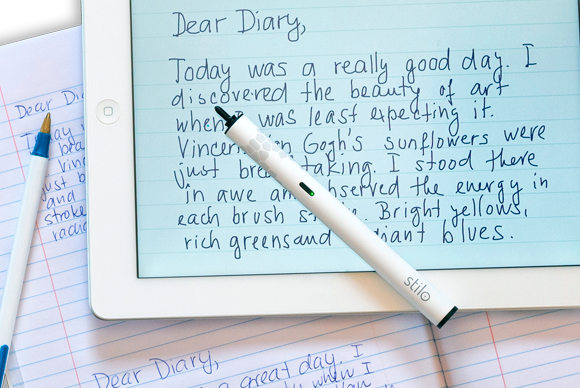 Dear Diary,
Today was a really good day. I
discovered the beauty of art
when I was least expecting it.
Gogh's sunflowers were
just taking. I stood there
in awe observed the energy in
each brush Bright yellows,
rich greens and blues.
stilo
Dear
just
and
Dear Diary,
a great day. I
when I